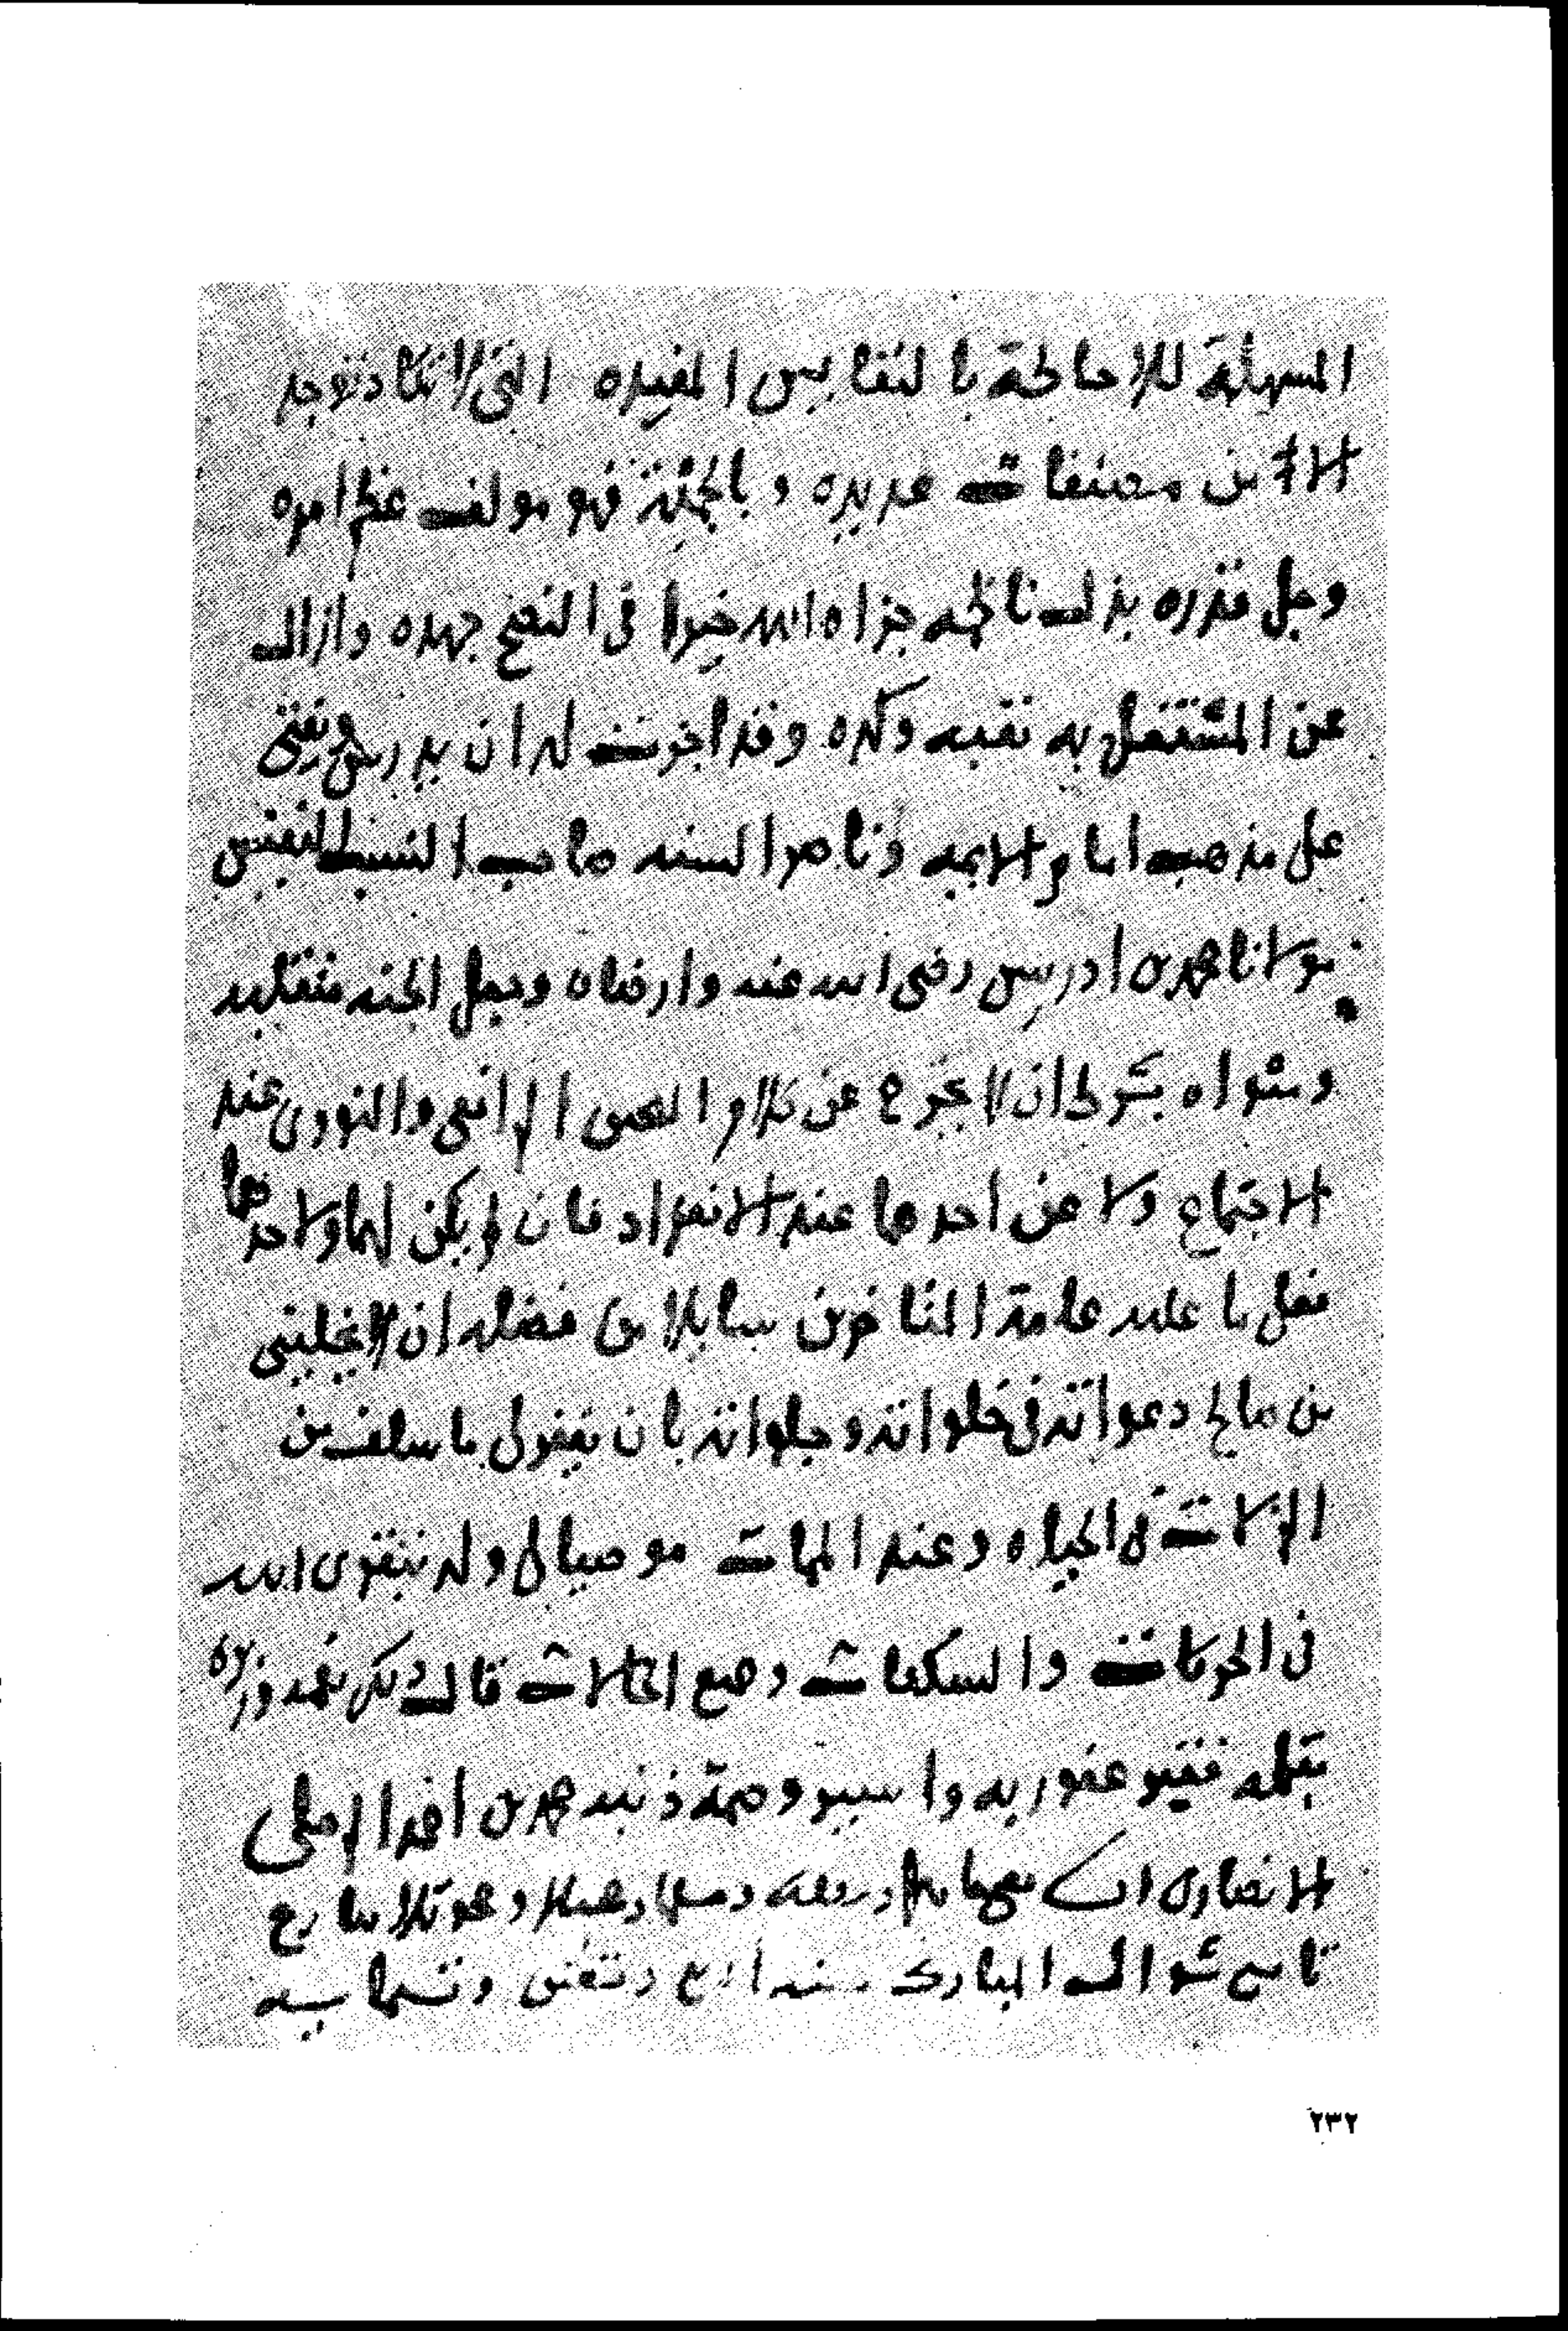 المسهلة للاحاطة بالنفايس المفيده التي لا تكاد توجد
الا من مصنفات عديده وبالجملة فهو مولف عظم امره
وجل قدره بذل ناظمه جزاه الله خيرا في النصح جهده وازال
عن المشتغل به تعبه وكده وقد اجزت له ان يدرس ويفتي
على مذهب امام الايمه وناصر السنه صاحب النسب النفيس
مولانا محمد بن ادريس رضي الله عنه وارضاه وجعل الجنه متقلبه
ومثواه بشرط ان لا يخرج عن كلام الرافعي والنووي عند
الاجتماع ولا عن احدهما عند الانفراد فان لم يكن لهما ولا احدهما
فعلى ما عليه عامة المتاخرين سايلا من فضله ان لا يخليني
من صالح دعواته في خلواته وجلواته بان يغفر لي ما سلف من
الزلات في الحياه وعند الممات موصيا لي وله بتقوى الله
في الحركات والسكنات وجميع الحالات قال ذلك بفمه وزبره
بقلمه فقير عفو ربه واسير وصمة ذنبه محمد بن احمد الرملي
الانصاري
تاسع شوال المبارك سنه اربع وتسعين وتسعمايه
٢٣٢